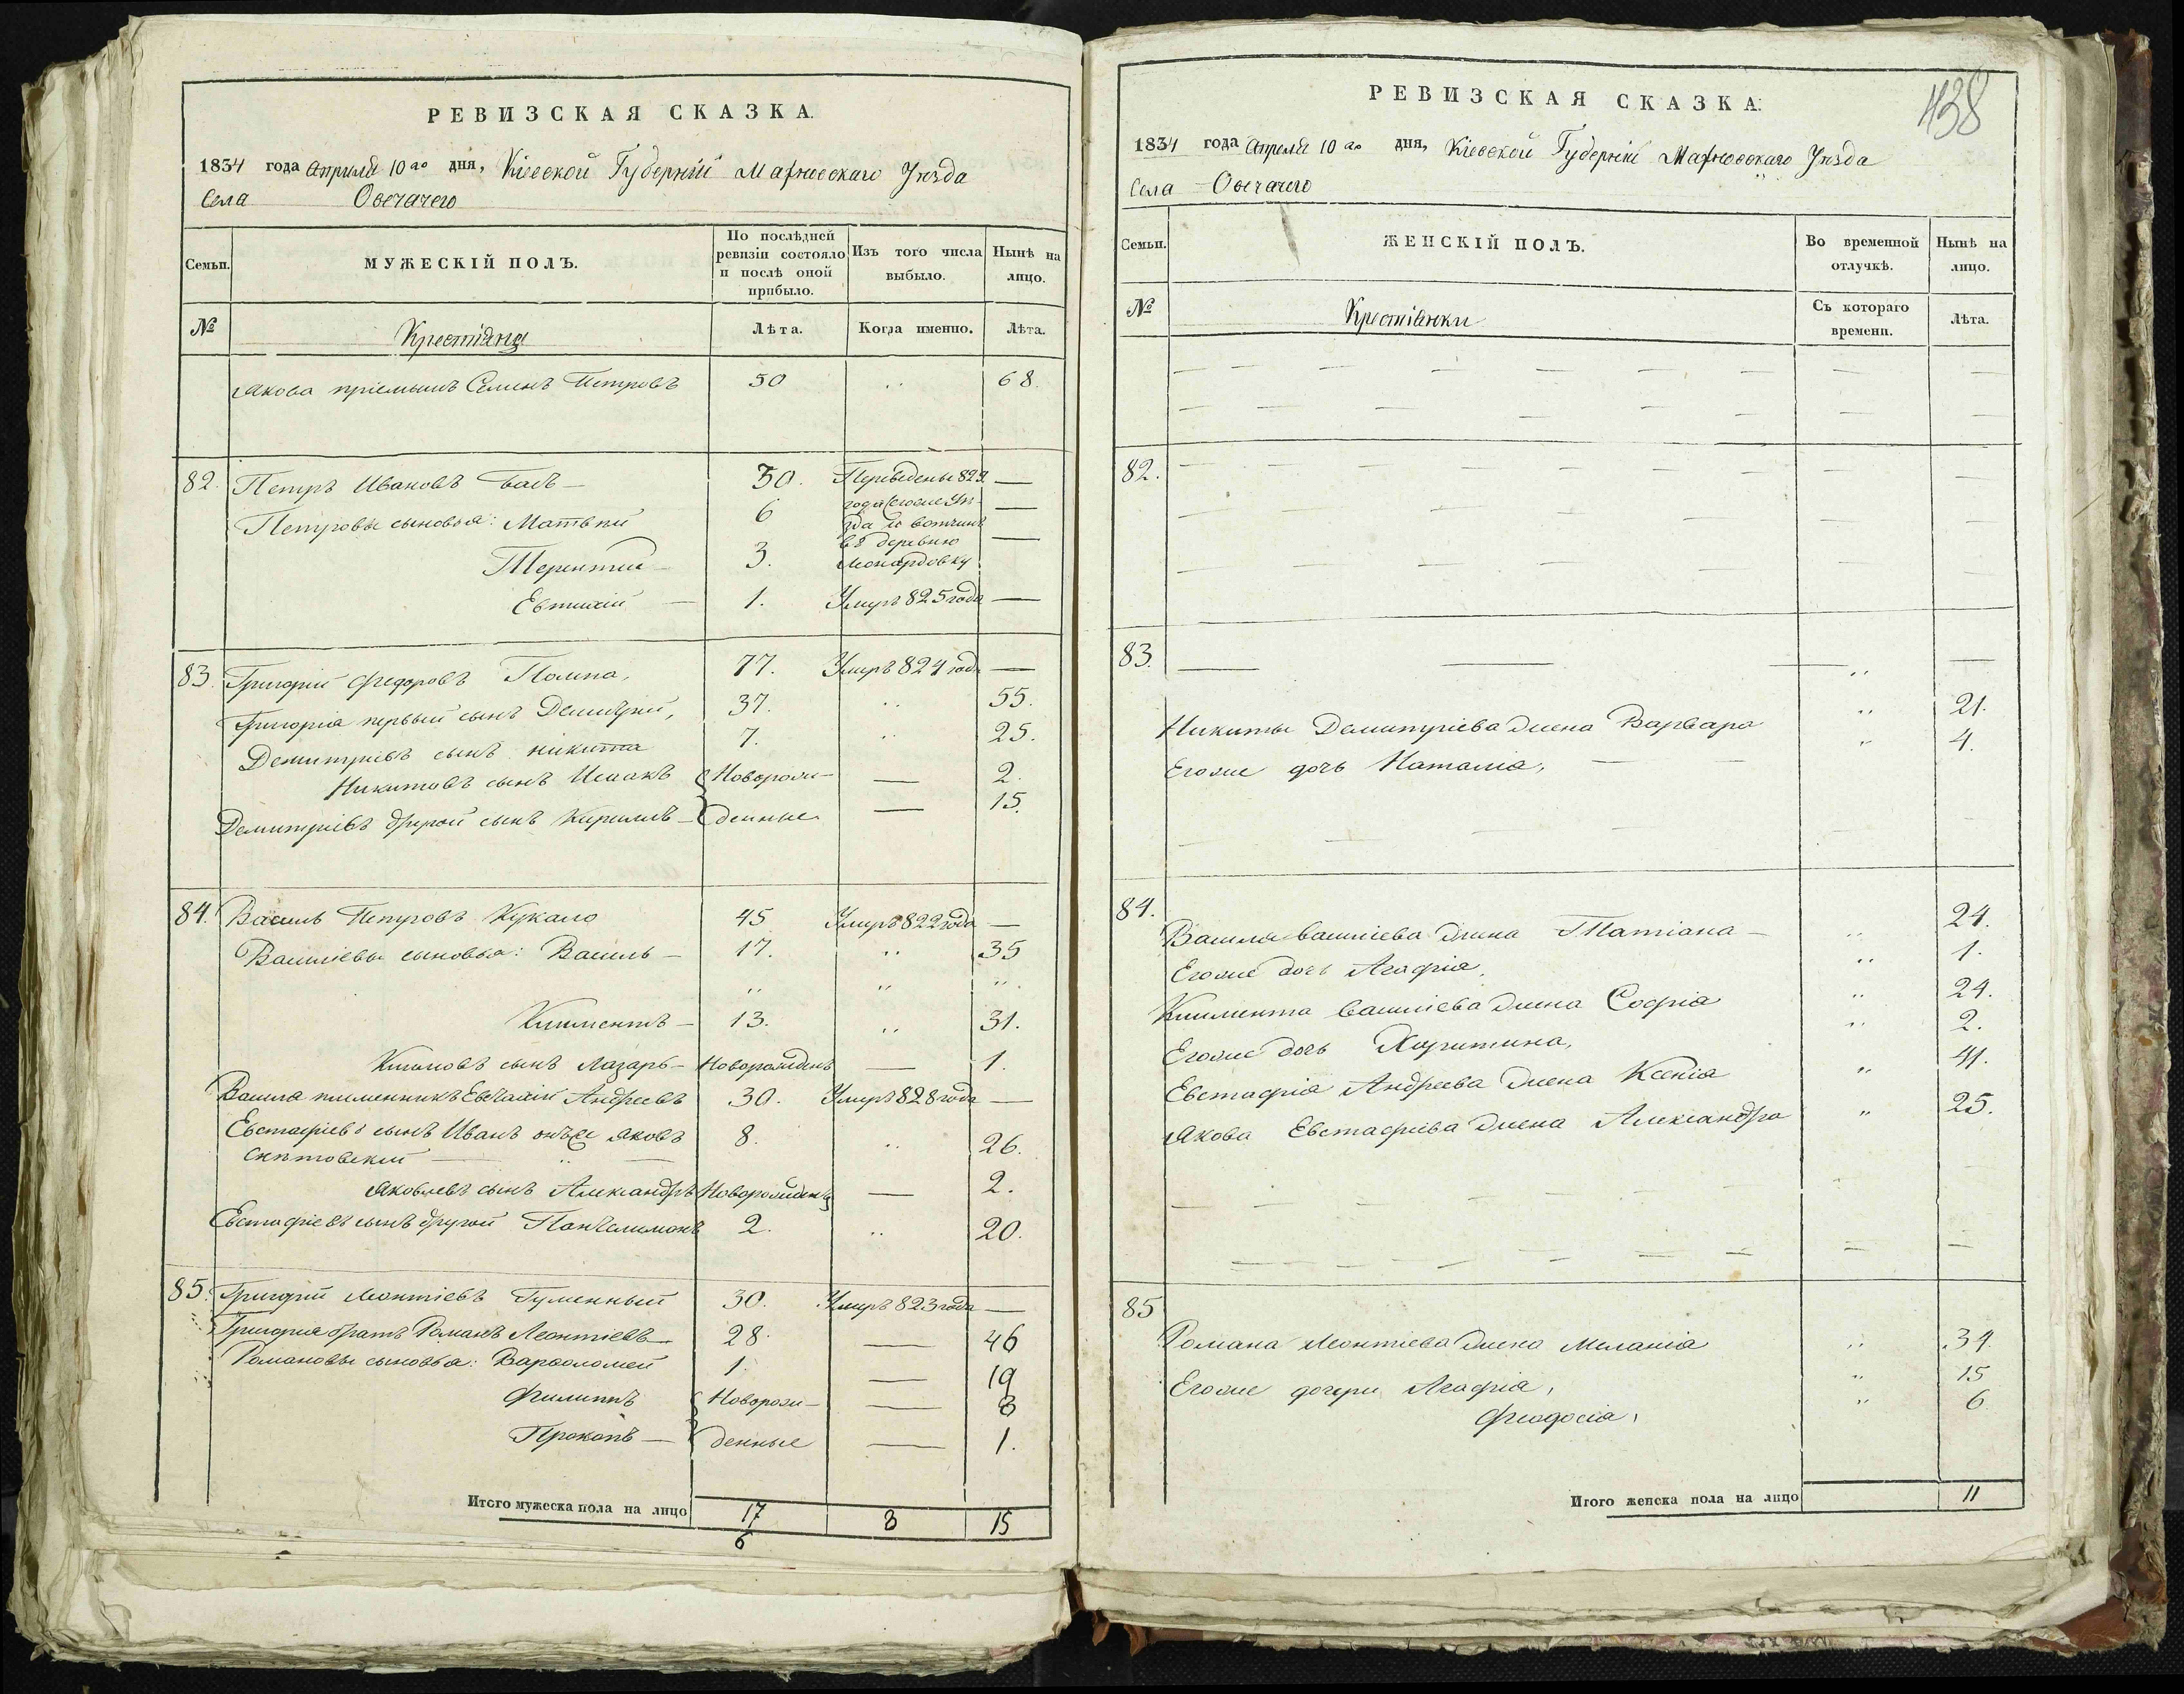 РЕВИЗСКАЯ СКАЗКА.
1834 года Апреля 10го дня, Кіевской Губерніи Махновскаго Уѣзда
Села Овечачего
Семьи.
МУЖЕСКІЙ ПОЛЪ.
По послѣдней ревизіи состояло и послѣ оной прибыло.
Изъ того числа выбыло.
Нынѣ на лицо.
№
Крестіяне
Лѣта.
Когда именно.
Лѣта.
Якова пріемышъ Семенъ Петровъ 50 „ 68.
82. Петръ Ивановъ 30. Переведены 829 —
Петровы сыновья: Матвѣй 6 года —
въ деревню
Терентій — 3. —
Евтихій — 1. Умеръ 825 года —
83. Григорій Федоровъ 77. Умеръ 824 года —
Григорія первый сынъ Демитрій, 37. „ 55.
Демитріевъ сынъ Никита 7. „ 25.
Никитовъ сынъ Исаакъ Новорож— — 2.
Демитріевъ другой сынъ Кирилъ — денные — 15.
84. Василь Петровъ Кукало 45 Умеръ 822 года —
Василіевы сыновья: Василь — 17. „ 35
„ „ „
Климентъ — 13. „ 31.
сынъ Лазарь — Новорожденъ — 1.
Василя племенникъ Евстафій Андреевъ 30. Умеръ 828 года —
Евстафіевъ сынъ Иванъ онъже Яковъ 8. „ 26.
— „ —
Яковлевъ сынъ Александръ Новорожденъ — 2.
Евстафіевъ сынъ другой Пантелимонъ 2. „ 20.
85. Григорій Леонтіевъ Гуменный 30. Умеръ 823 года —
Григорія братъ Романъ Леонтіевъ — 28. — 46
Романовы сыновья: Варфоломей 1. — 19
Филиппъ Новорож— — 8
Прокопъ — денные — 1.
Итого мужеска пола на лицо 17 8 15
6
438
РЕВИЗСКАЯ СКАЗКА.
1834 года Апреля 10го дня, Кіевской Губерніи Махновскаго Уѣзда
Села Овечачего
Семьи.
ЖЕНСКІЙ ПОЛЪ.
Во временной отлучкѣ.
Нынѣ на лицо.
№
Крестіянки
Съ котораго времени.
Лѣта.
82.
83.
Никиты Демитріева жена Варвара „ 21.
Егоже дочь Наталія, „ 4.
84.
Василя Василіева жена Татіана — „ 24.
Егоже дочь Агафія, „ 1.
Климента Василіева жена Софія „ 24.
Егоже дочь Харитина, „ 2.
Евстафія Андреева жена Ксенія „ 41.
Якова Евстафіева жена Александра „ 25.
85
Романа Леонтіева жена Меланія „ 34.
Егоже дочери Агафія, „ 15
Феодосія, „ 6
Итого женска пола на лицо 11